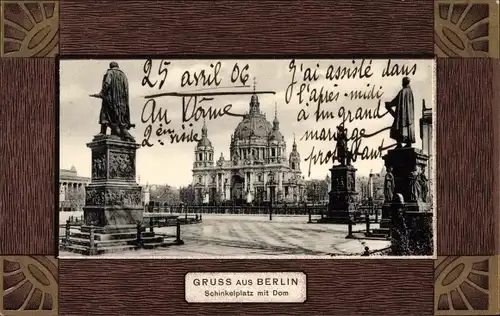 25 avril 06
Au Dôme
2ème visite
J'ai assisté dans
l'après-midi
à un grand
mariage
protestant
GRUSS AUS BERLIN
Schinkelplatz mit Dom